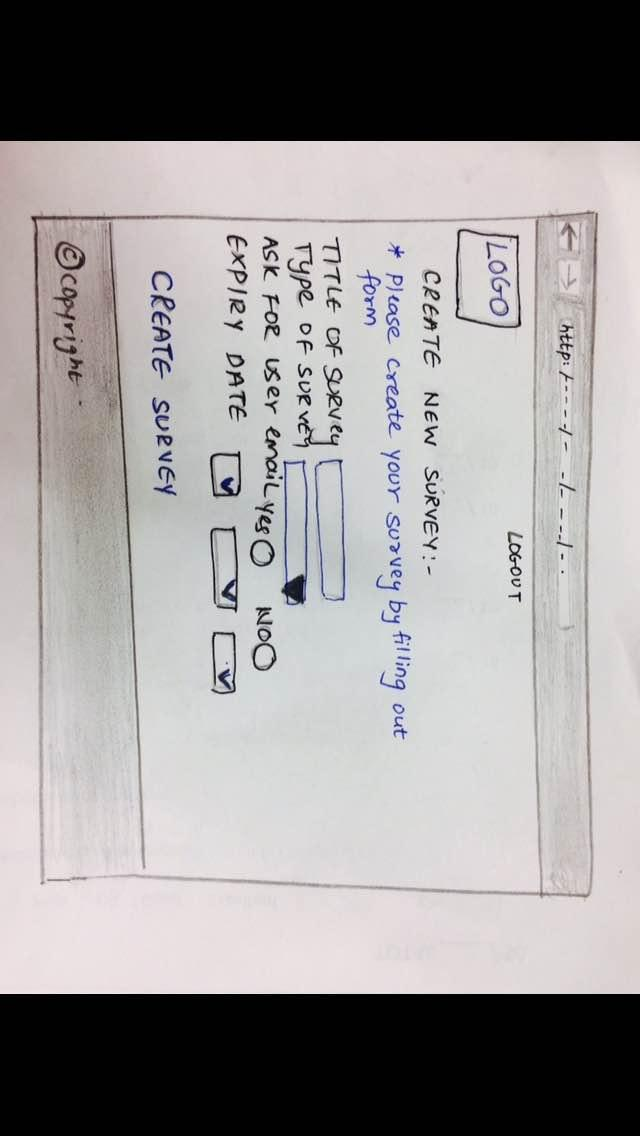 http:/----/- -/----/--
LOGO
LOGOUT
CREATE NEW SURVEY:-
* Please create your survey by filling out
form
TITLE OF SURVEY
TYPE OF SURVEY
ASK FOR USER email YES NO
EXPIRY DATE
CREATE SURVEY
© copyright.